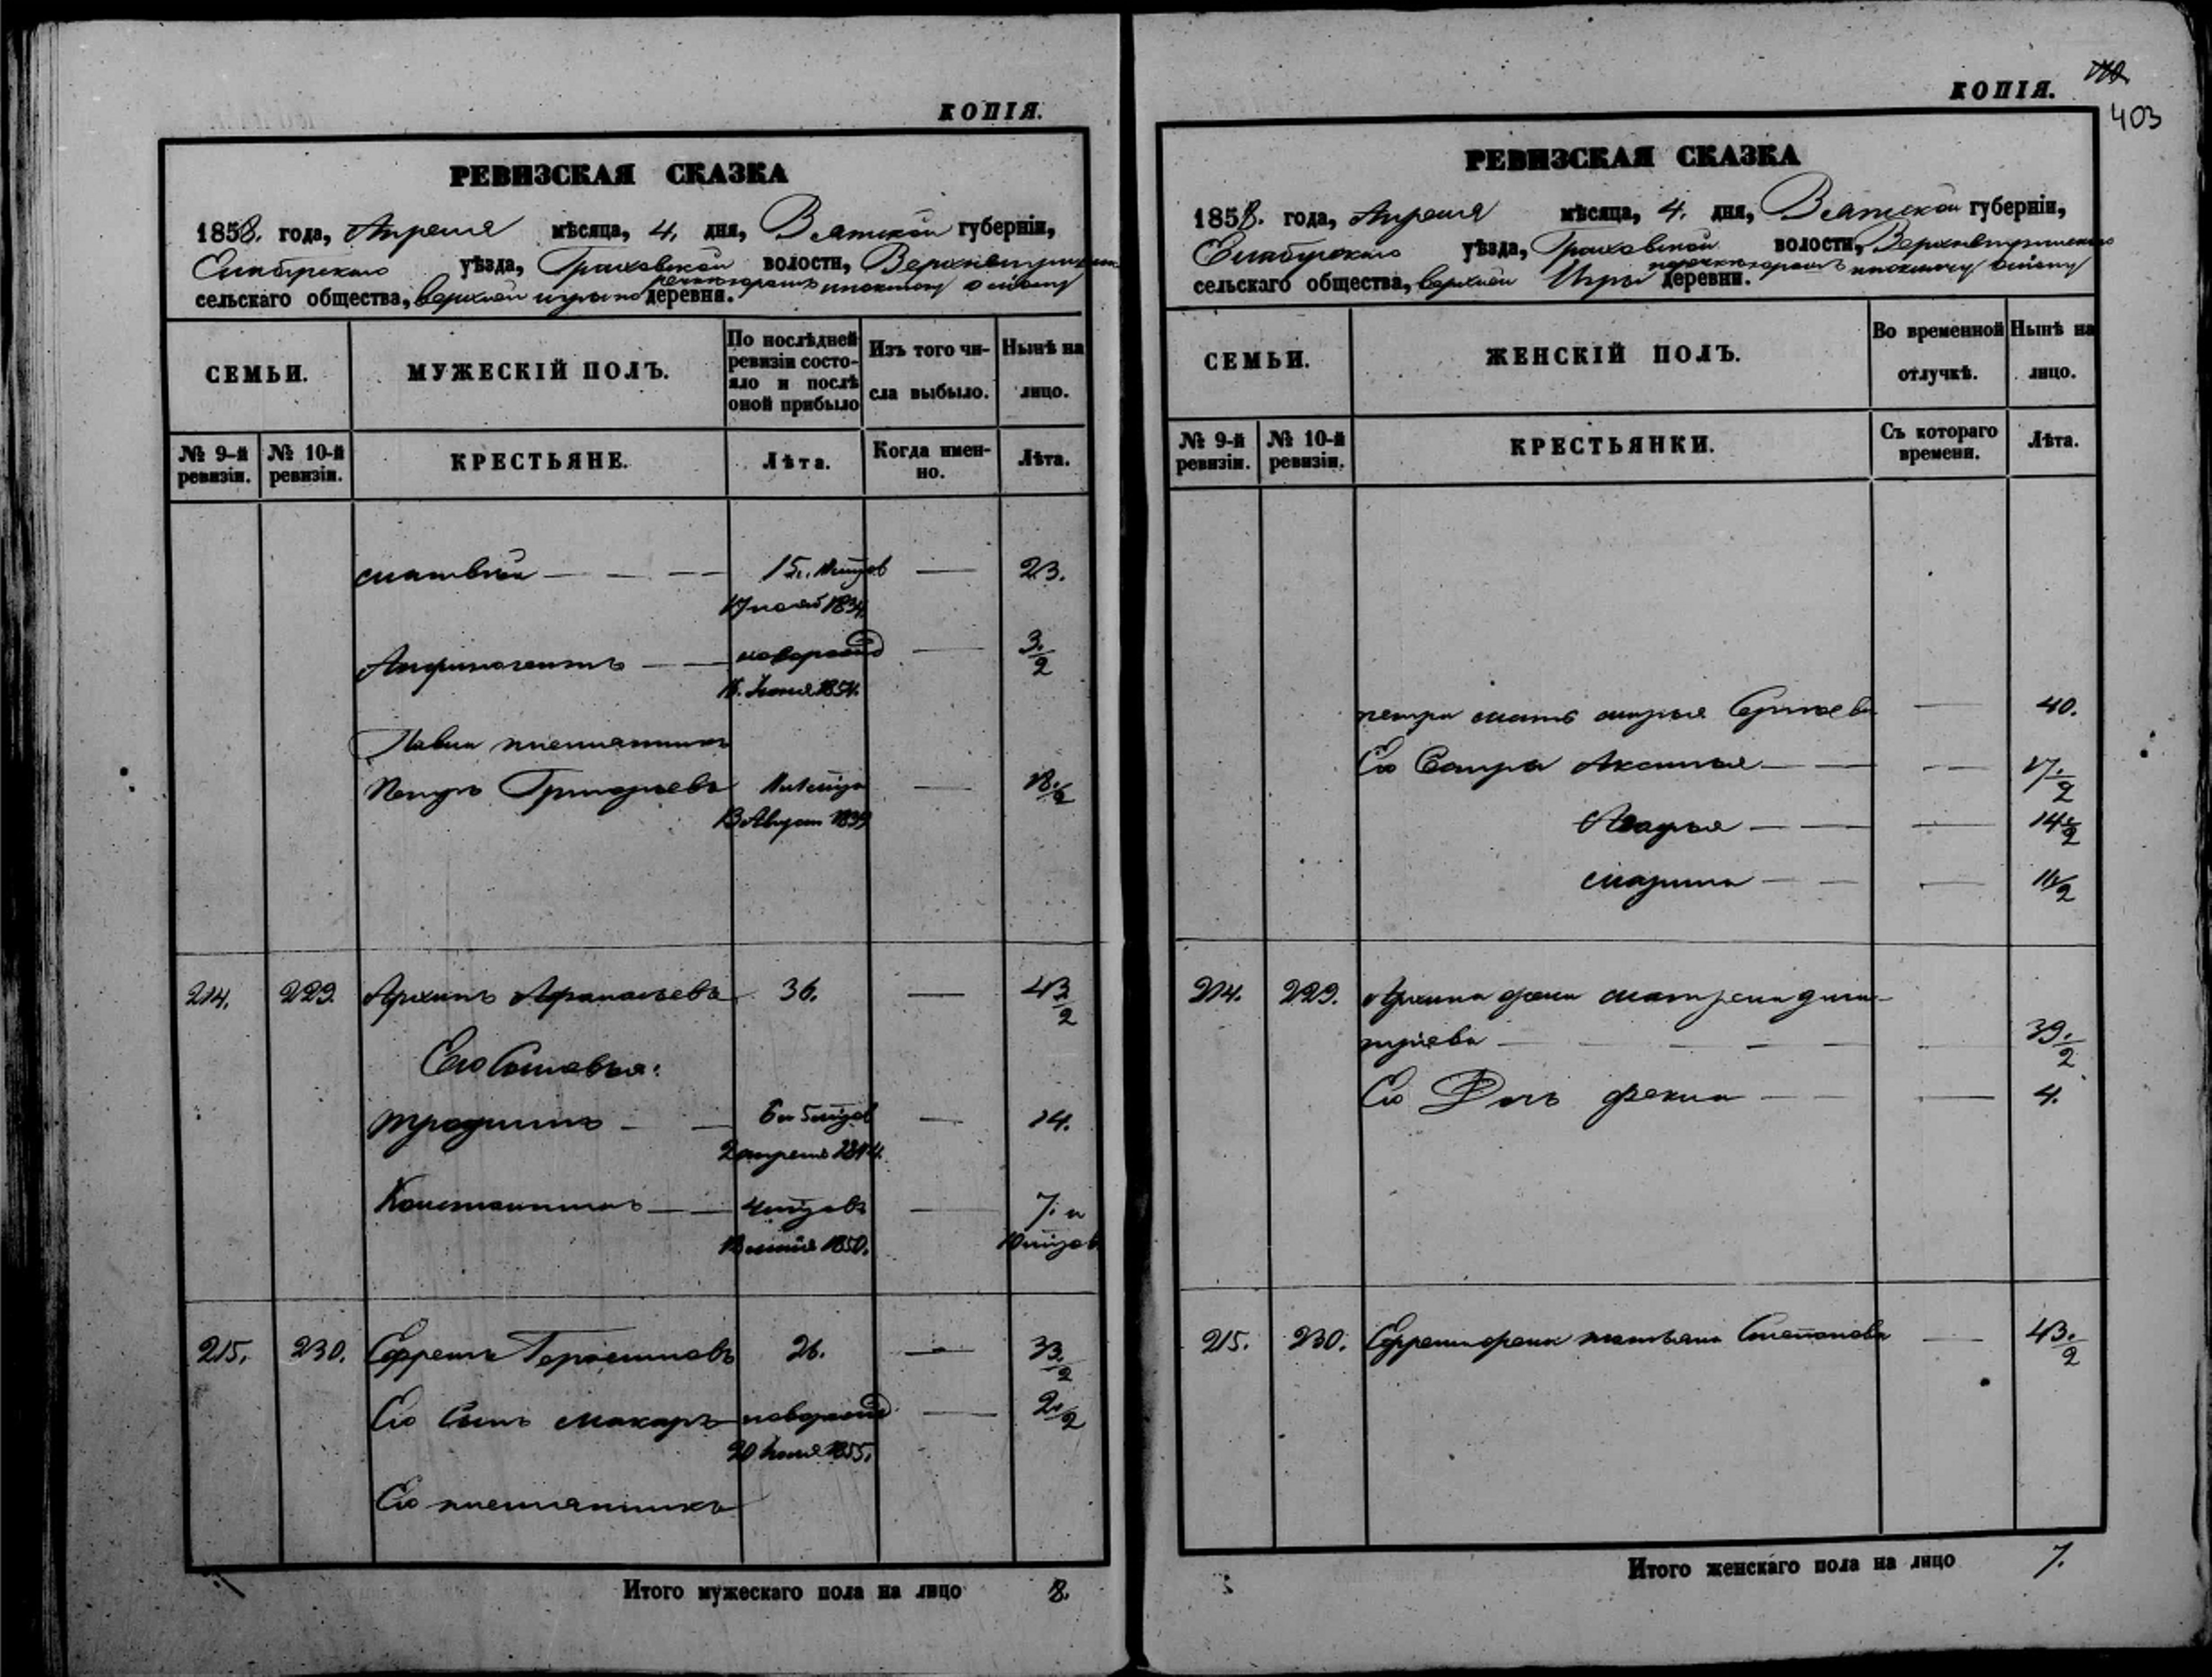 КОПІЯ.
РЕВИЗСКАЯ СКАЗКА
1858. года, Апреля мѣсяца, 4. дня, Вятской губерніи,
Елабугскаго уѣзда, Граховской волости,
сельскаго общества, верхней игры по деревни.
СЕМЬИ.
МУЖЕСКІЙ ПОЛЪ.
По послѣдней ревизіи состо-
яло и послѣ оной прибыло
Изъ того чи-
сла выбыло.
Нынѣ на лицо.
№ 9-й ревизіи.
№ 10-й ревизіи.
КРЕСТЬЯНЕ.
Лѣта.
Когда имен-
но.
Лѣта.
матвѣй — — — 15 — 23.
Анфиногентъ — — новорожд — 3 1/2
Іюня 1854.
Павла племянникъ
Петръ Григорьевъ — 18 1/2
13 Август 1839
214. 229. Архипъ Афанасьевъ 36. — 43 1/2
Его Сыновья:
трофимъ — — — 14.
Константинъ — — — 7. и
1850.
215. 230. Ефремъ Герасимовъ 26. — 33 1/2
Его Сынъ макаръ новорожд — 2 1/2
20 1855.
Его племянникъ
Итого мужескаго пола на лицо 8.
КОПІЯ.
403
РЕВИЗСКАЯ СКАЗКА
1858. года, Апреля мѣсяца, 4. дня, Вятской губерніи,
Елабугскаго уѣзда, Граховской волости,
сельскаго общества, верхней Игры деревни.
СЕМЬИ.
ЖЕНСКІЙ ПОЛЪ.
Во временной
отлучкѣ.
Нынѣ на
лицо.
№ 9-й ревизіи.
№ 10-й ревизіи.
КРЕСТЬЯНКИ.
Съ котораго
времени.
Лѣта.
петра мать марья Сергѣева — 40.
Его Сестра Аксинья — — — 17. 1/2
— — — 14 1/2
марина — — — 11 1/2
214. 229. Архипа жена матрена дми-
тріева — — — — 39. 1/2
Его Дочь фекла — — — 4.
215. 230. Ефрема жена татьяна Степанова — 43. 1/2
Итого женскаго пола на лицо 7.